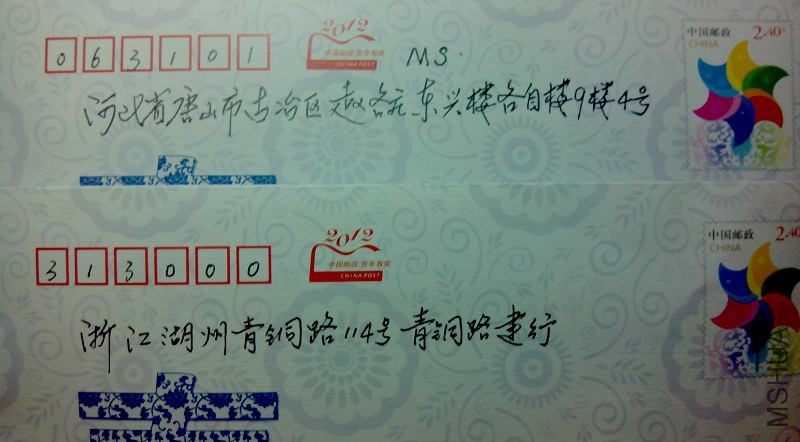 2012
中国邮政
2.40元
CHINA
063101
中国邮政·贺年有奖
CHINA POST
MS.
河北省唐山市古冶区赵各庄东兴楼各自楼9楼4号
2012
中国邮政
2.40
CHINA
313000
中国邮政·贺年有奖
CHINA POST
浙江湖州青铜路114号青铜路建行
MSHUA